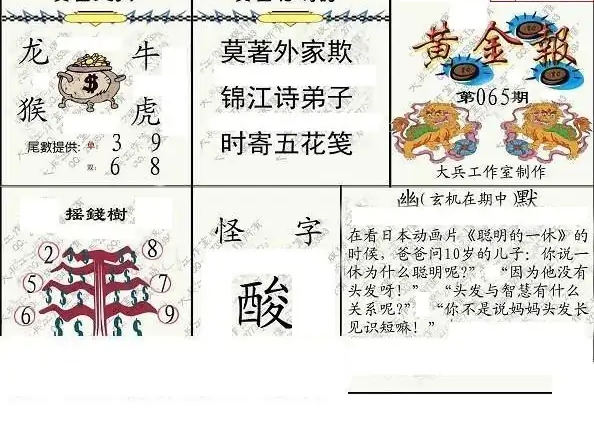 龙 牛
$
猴 虎
尾數提供: 单: 3 9
双: 6 8
莫著外家欺
锦江诗弟子
时寄五花笺
黄金報
第065期
大兵工作室制作
摇錢樹
2 8
5 7
6 9
怪 字
酸
幽(玄机在期中)默
在看日本动画片《聪明的一休》的
时候，爸爸问10岁的儿子：你说一
休为什么聪明呢?” “因为他没有
头发呀！” “头发与智慧有什么
关系呢?” “你不是说妈妈头发长
见识短嘛！”